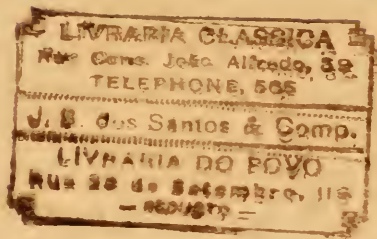 LIVRARIA CLASSICA
Rua Cons. João Alfredo,
TELEPHONE, 565
J. B. dos Santos & Comp.
LIVRARIA DO POVO
Rua 28 de Setembro,